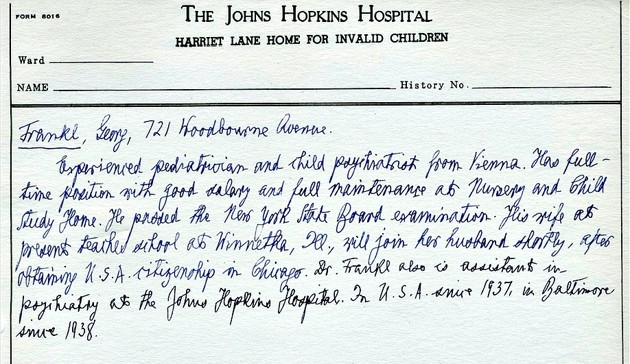 FORM 8016
THE JOHNS HOPKINS HOSPITAL
HARRIET LANE HOME FOR INVALID CHILDREN
Ward
NAME History No.
Frankl, Georg, 721 Woodbourne Avenue.
Experienced pediatrician and child psychiatrist from Vienna. Has full-
time position with good salary and full maintenance at Nursery and Child
Study Home. He passed the New York State Board examination. His wife at
present teaches school at Winnetka, Ill., will join her husband shortly, after
obtaining U.S.A. citizenship in Chicago. Dr. Frankl also is assistant in
psychiatry at the Johns Hopkins Hospital. In U.S.A. since 1937, in Baltimore
since 1938.